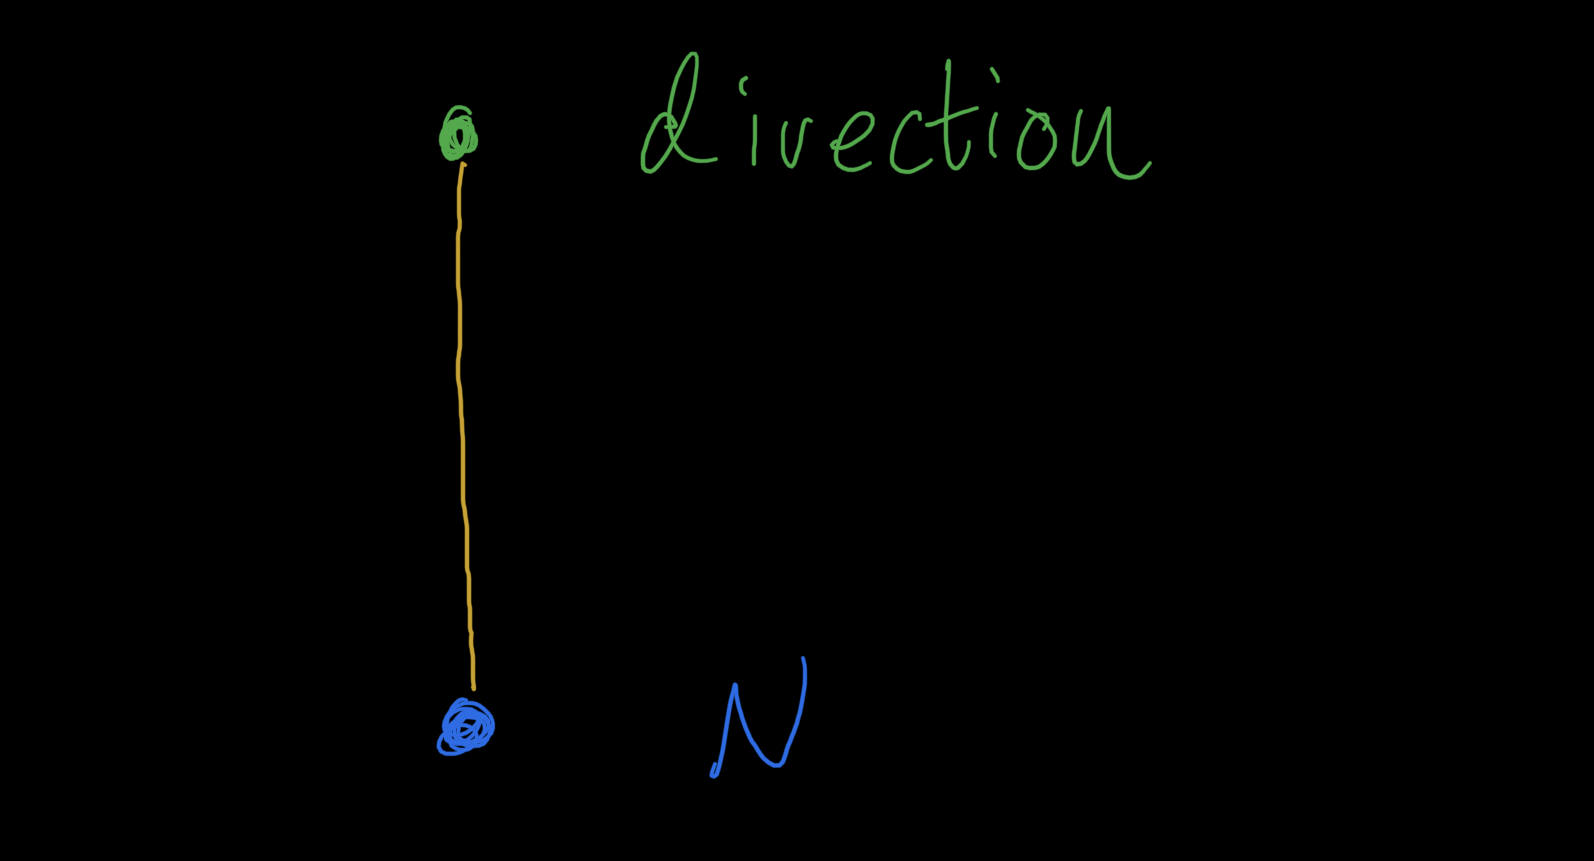 direction
N